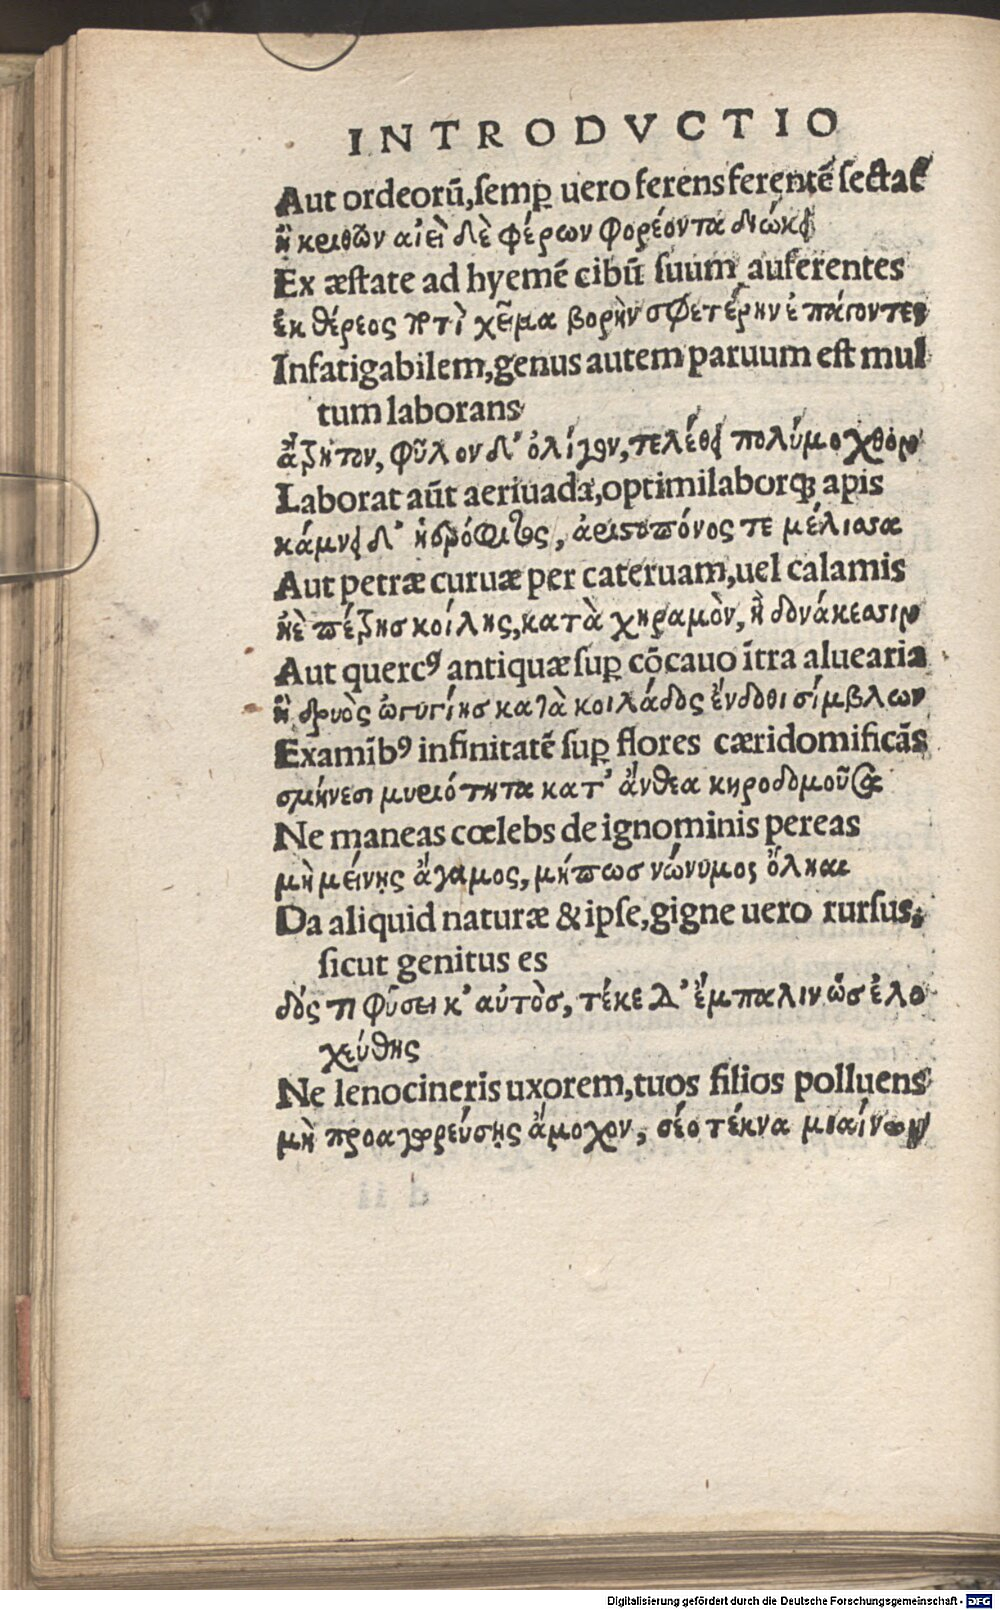 INTRODVCTIO
Aut ordeorũ, semꝑ uero ferens ferentẽ sectat᷑
ἢ κριθῶν αἰεὶ δὲ φέρων φορέοντα διώκει
Ex æstate ad hyemẽ cibũ suum auferentes
ἐκ θέρεος ποτὶ χεῖμα βορὴν σφετέρην ἐπάγοντες
Infatigabilem, genus autem paruum est mul
tum laborans
ἄζητον, φῦλον δ᾽ ὀλίγον, τελέθει πολύμοχθον
Laborat aũt aeriuada, optimi laborqꝫ apis
κάμνει δ᾽ ἠεροφῖτις, ἀριστοπόνος τε μέλισσα
Aut petræ curuæ per cateruam, uel calamis
ἠὲ πέζησ κοίλης, κατὰ χηραμὸν, ἢ δονάκεσσιν
Aut quercꝰ antiquæ suꝑ cõcauo ĩtra aluearia
ἢ δρυὸς ὠγυγίησ κατὰ κοιλάδος ἔνδοθι σίμβλων
Examĩbꝰ infinitatẽ suꝑ flores cæridomificãs
σμήνεσι μυριότητα κατ᾽ ἄνθεα κηροδομοῦσα
Ne maneas cœlebs de ignominis pereas
μὴ μείνῃς ἄγαμος, μήπωσ νώνυμος ὄληαι
Da aliquid naturæ & ipse, gigne uero rursus,
sicut genitus es
δός τι φύσει κ᾽ αὐτὸσ, τέκε δ᾽ ἔμπαλιν ὣσ ἐλο
χεύθης
Ne lenocineris uxorem, tuos filios polluens
μὴ προαγορεύσῃς ἄμοχον, σέο τέκνα μιαίνων